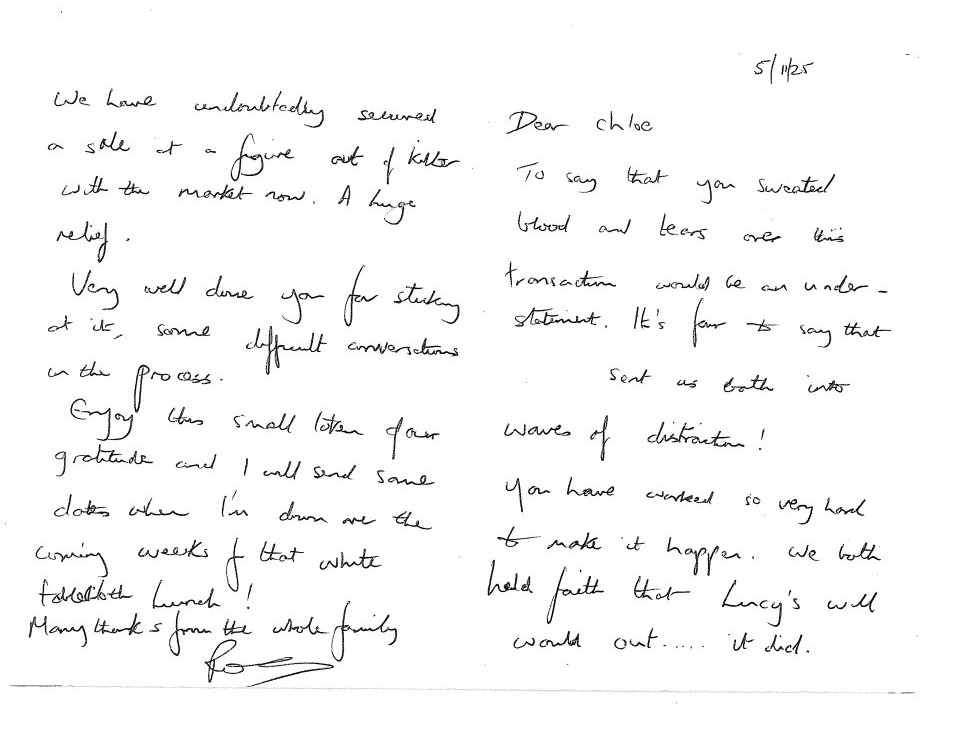 5/11/25
Dear Chloe
To say that you sweated
blood and tears over this
transaction would be an under-
statement. It's fair to say that
sent us both into
waves of distraction!
You have worked so very hard
to make it happen. We both
held faith that Lucy's will
would out..... it did.
We have undoubtedly secured
a sale at a figure out of kilter
with the market now. A huge
relief.
Very well done you for sticking
at it, some difficult conversations
in the process.
Enjoy this small token of our
gratitude and I will send some
dates when I'm down over the
coming weeks for that white
tablecloth lunch!
Many thanks from the whole family